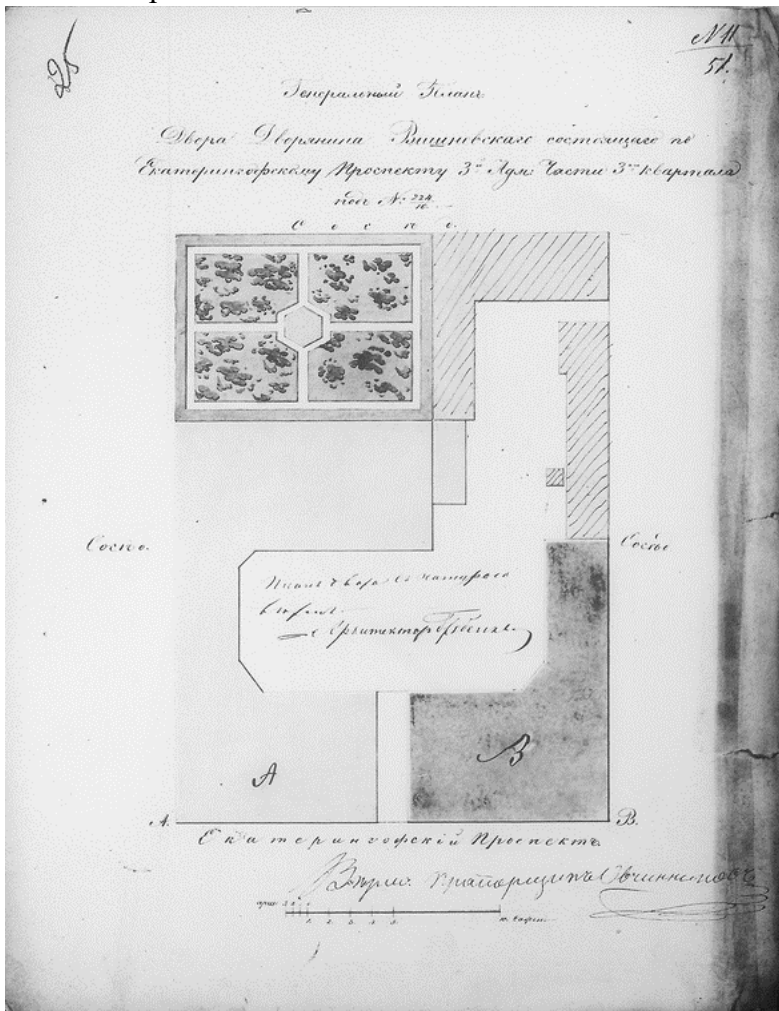 25
N 11
51.
Генеральный Планъ
Двора Дворянина Вишневскаго состоящаго по
Екатерингофскому Проспекту 3й Адм: Части 3го квартала
подъ N: 224/10.
Сосѣд.
Сосѣд.
Сосѣд.
съ натурою
Архитекторъ
А
В
А.
В.
Екатерингофскій Проспектъ
Вѣрно: Прапорщикъ Овчинниковъ
10. Сажень